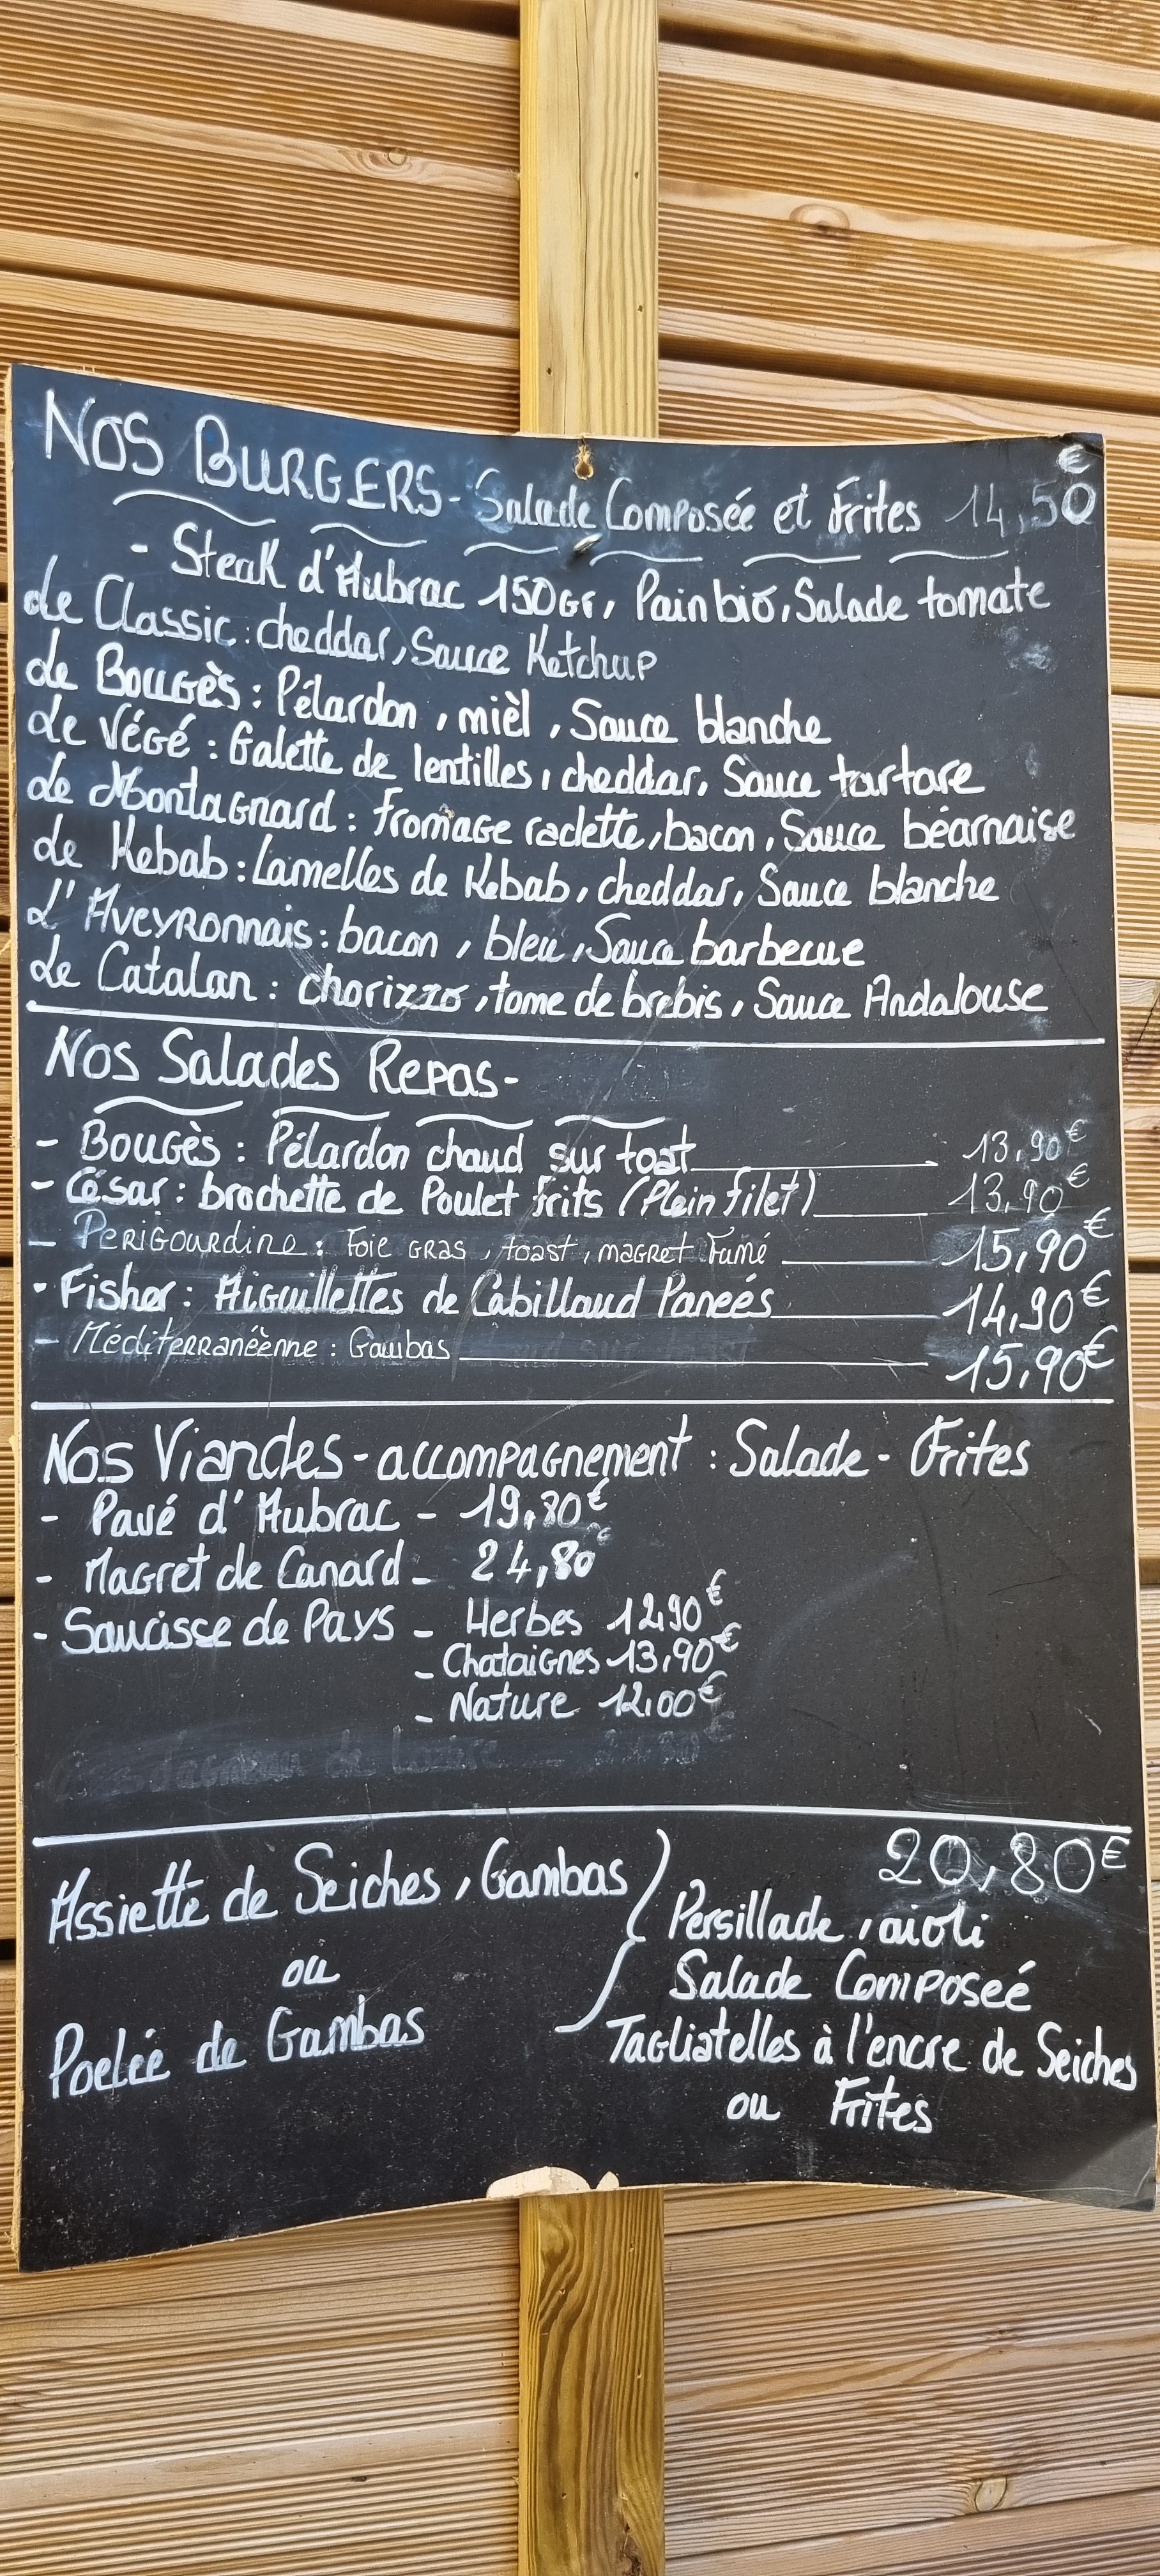 NOS BURGERS - Salade Composée et Frites 14,50€
- Steak d'Aubrac 150Gr, Pain bio, Salade tomate
Le Classic : cheddar, Sauce Ketchup
Le Bougès : Pélardon, mièl, Sauce blanche
Le Végé : Galette de lentilles, cheddar, Sauce tartare
Le Montagnard : Fromage raclette, bacon, Sauce béarnaise
Le Kebab : Lamelles de Kebab, cheddar, Sauce blanche
L'Aveyronnais : bacon, bleu, Sauce barbecue
Le Catalan : chorizzo, tome de brebis, Sauce Andalouse
Nos Salades Repas -
- Bougès : Pélardon chaud sur toast 13,90€
- César : brochette de Poulet frits (Plein filet) 13,90€
- Perigourdine : Foie gras, toast, magret Fumé 15,90€
- Fisher : Aiguillettes de Cabillaud Paneés 14,90€
- Méditerranéènne : Gambas 15,90€
Nos Viandes - accompagnement : Salade - Frites
- Pavé d'Aubrac - 19,80€
- Magret de Canard - 24,80€
- Saucisse de Pays - Herbes 12,90€
- Chataignes 13,90€
- Nature 12,00€
20,80€
Assiette de Seiches, Gambas
ou
Poelée de Gambas
Persillade, aioli
Salade Composeé
Tagliatelles à l'encre de Seiches
ou Frites